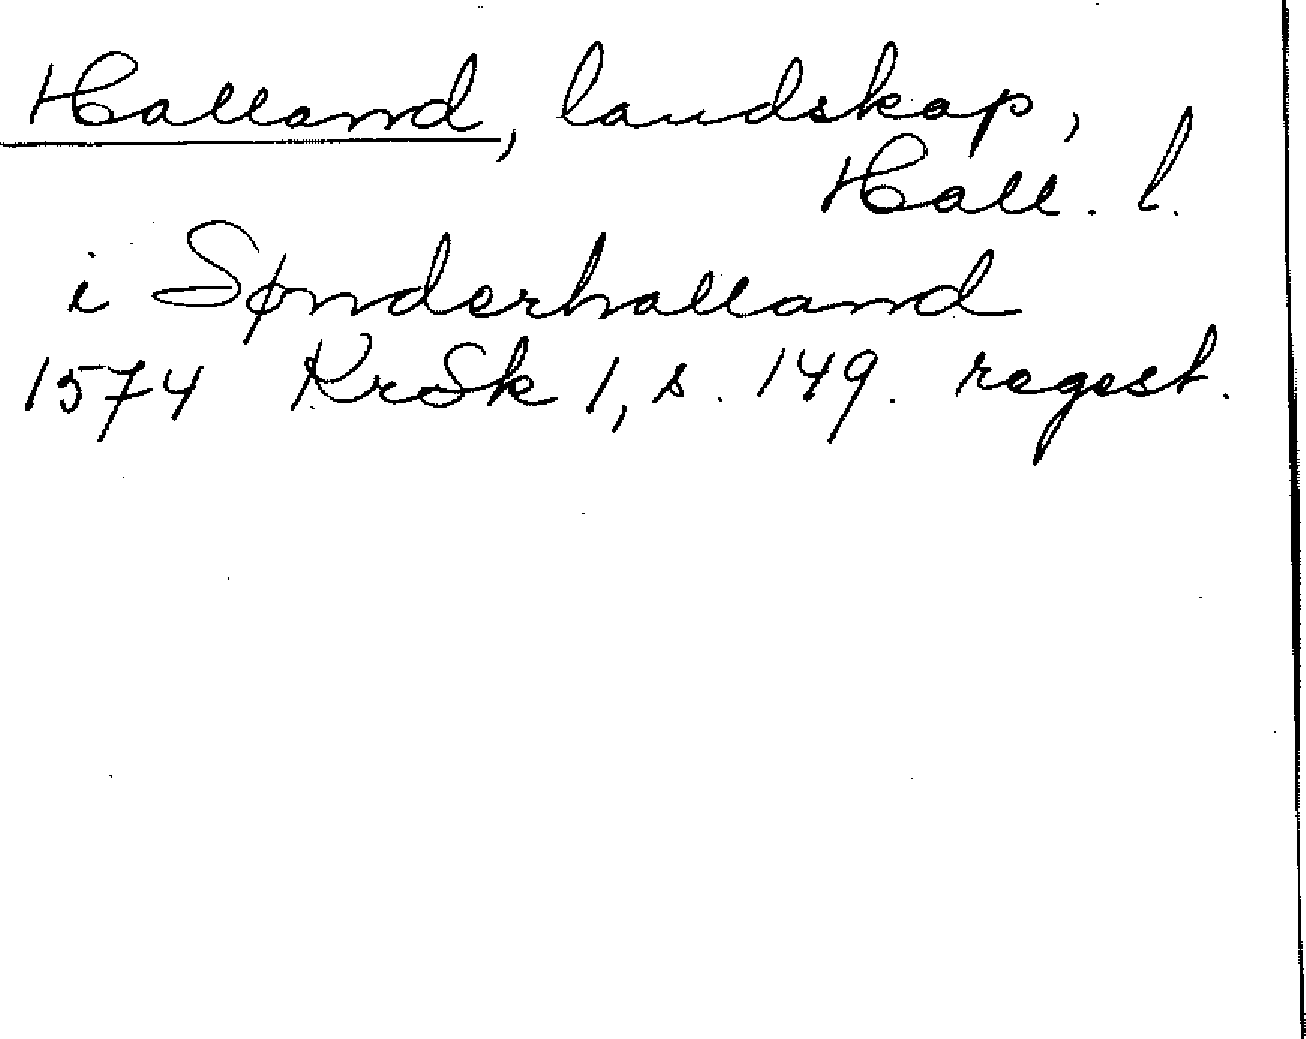 Halland, landskap,
Hall. l.
i Sønderhalland
1574 KrSk 1, s. 149. regest.